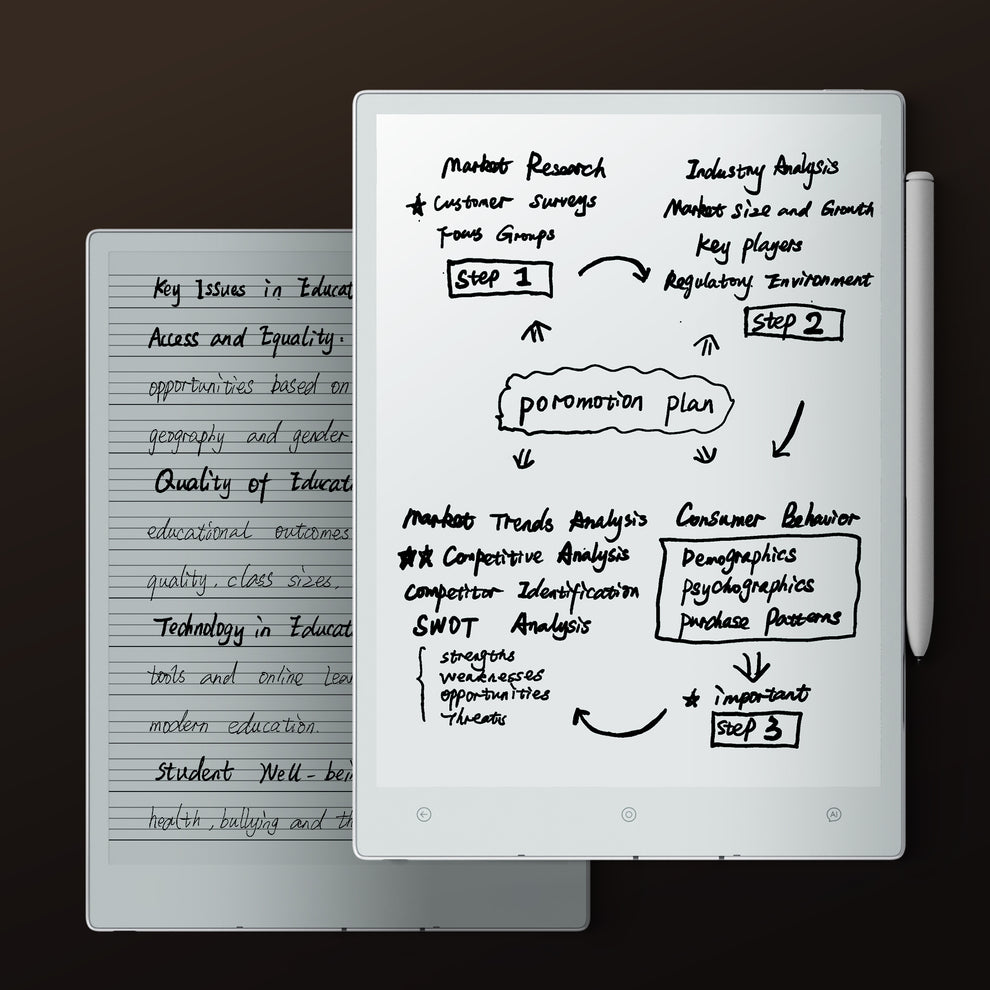 Key Issues in Educat
Access and Equality:
opportunities based on
geography and gender.
Quality of Educat
educational outcomes
quality, class sizes,
Technology in Educat
tools and online lear
modern education.
Student Well-bei
health, bullying and th
Market Research
★ Customer surveys
Focus Groups
Step 1
Industry Analysis
Market size and Growth
key players
Regulatory Environment
Step 2
poromotion plan
Market Trends Analysis
★★ Competitive Analysis
Competitor Identification
SWOT Analysis
strengths
weaknesses
opportunities
Threats
Consumer Behavior
Demographics
Psychographics
purchase Patterns
★ important
Step 3
AI